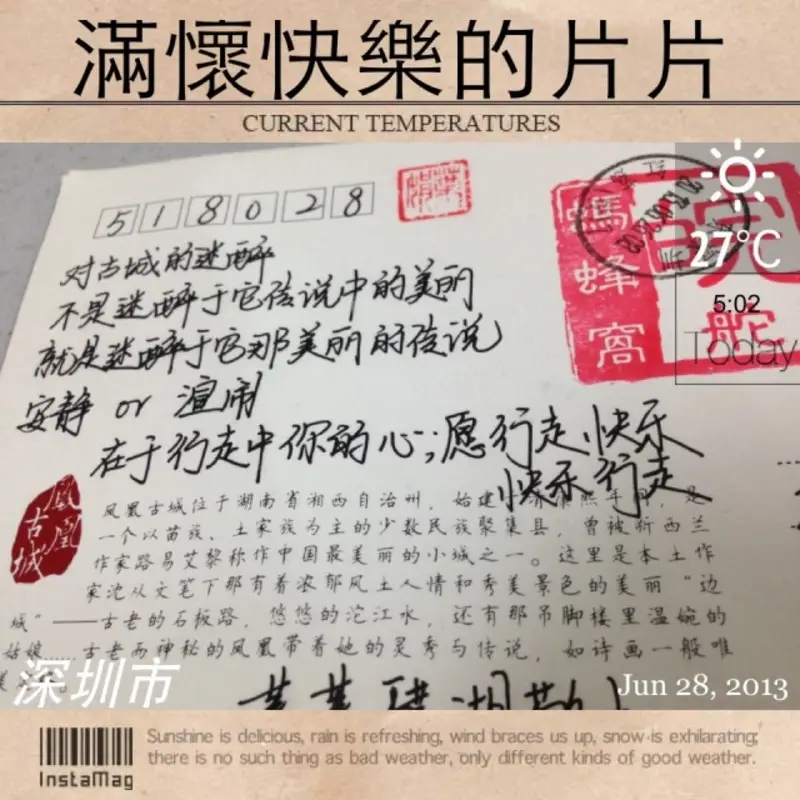 滿懷快樂的片片
CURRENT TEMPERATURES
518028
27°C
5:02
Today
蜂窩
对古城的迷醉
不是迷醉于它传说中的美丽
就是迷醉于它那美丽的传说
安静 or 渲闹
在于行走中你的心;愿行走快乐
快乐行走
凤凰古城
凤凰古城位于湖南省湘西自治州,始建
一个以苗族、土家族为主的少数民族聚集县,曾被新西兰
作家路易艾黎称作中国最美丽的小城之一。这里是本土作
家沈从文笔下那有着浓郁风土人情和秀美景色的美丽“边
城”——古老的石板路,悠悠的沱江水,还有那吊脚楼里温婉的
姑娘……古老而神秘的凤凰带着她的灵秀与传说,如诗画一般唯
深圳市
Jun 28, 2013
InstaMag
Sunshine is delicious, rain is refreshing, wind braces us up, snow is exhilarating;
there is no such thing as bad weather, only different kinds of good weather.